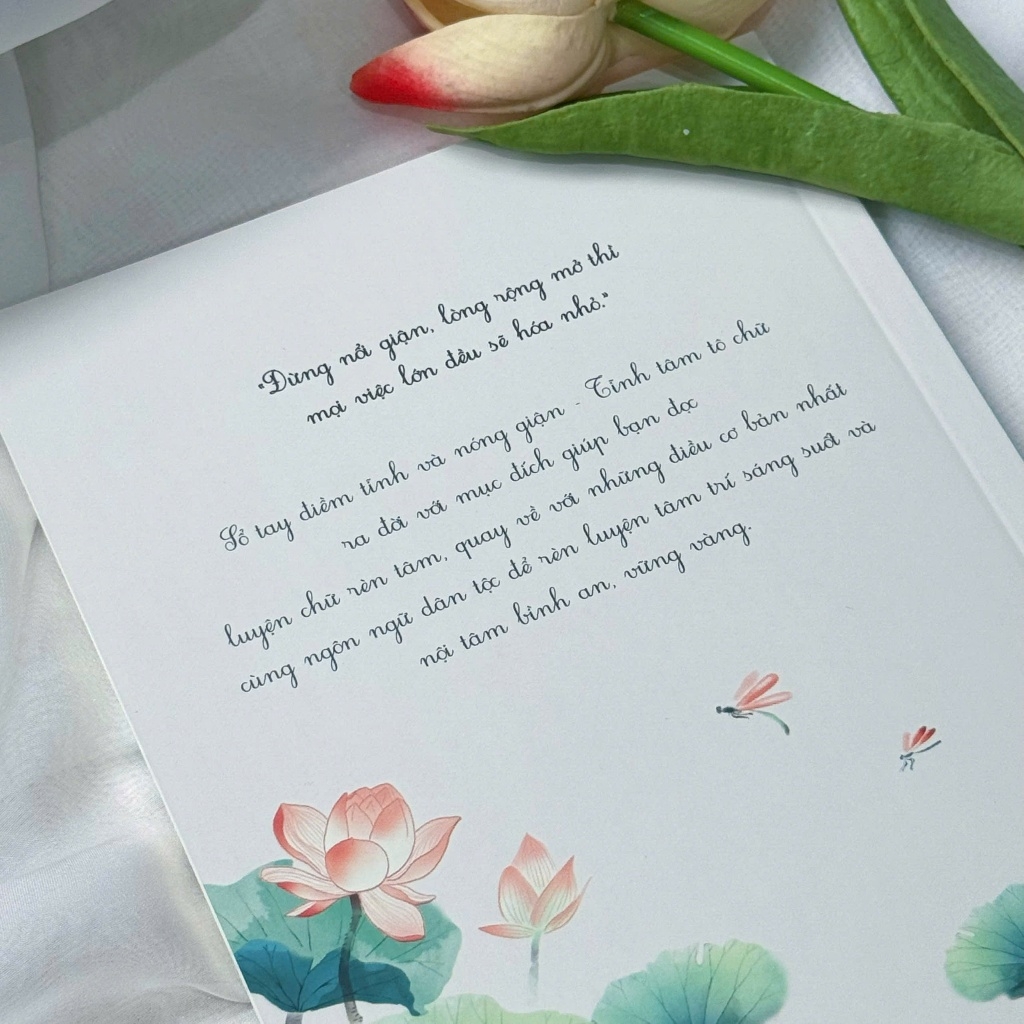 "Đừng nổi giận, lòng rộng mở thì
mọi việc lớn đều sẽ hóa nhỏ."
Sổ tay điềm tĩnh và nóng giận - Tĩnh tâm tô chữ
ra đời với mục đích giúp bạn đọc
luyện chữ rèn tâm, quay về với những điều cơ bản nhất
cùng ngôn ngữ dân tộc để rèn luyện tâm trí sáng suốt và
nội tâm bình an, vững vàng.